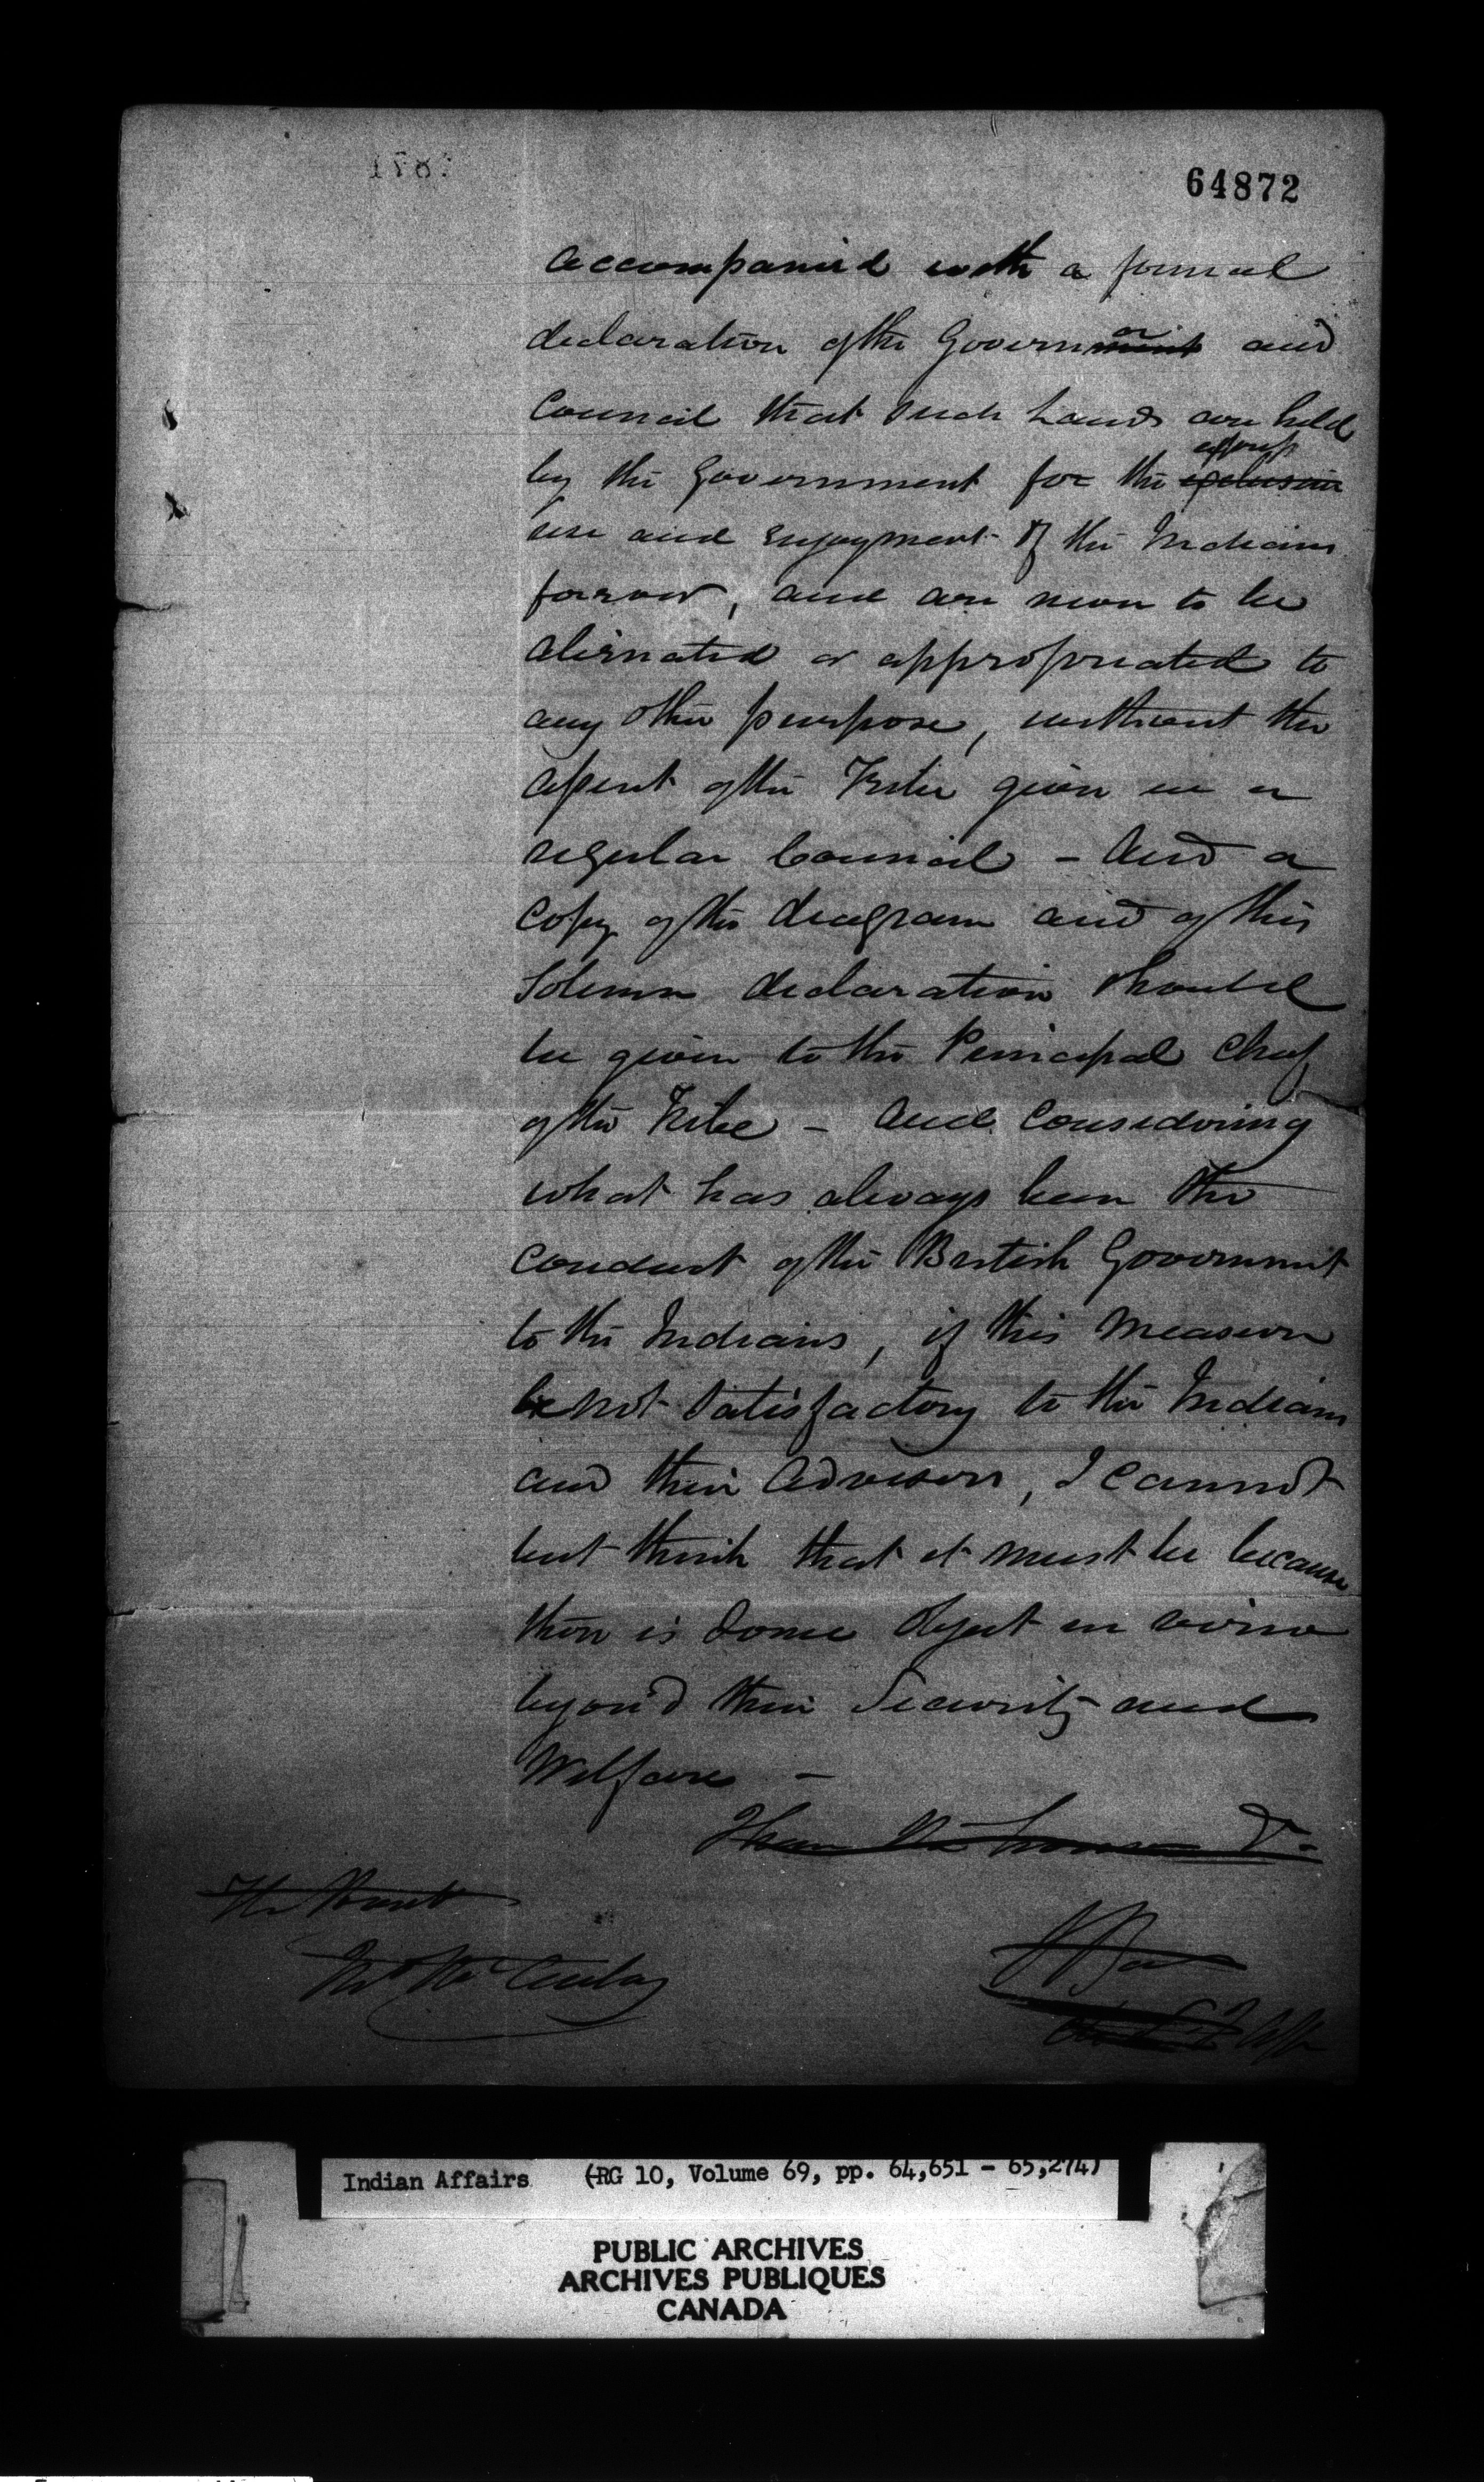 178
64872
accompanied with a formal
declaration of the Government or and
Council that such Lands are held
express
by the Government for the exclusive
use and enjoyment of the Indians
forever, and are never to be
alienated or appropriated to
any other purpose, without the
assent of the Tribe given in a
regular Council - And a
Copy of this diagram and of this
Solemn declaration should
be given to the Principal Chief
of the Tribe - And Considering
what has always been the
conduct of the British Government
to the Indians, if this measure
be not satisfactory to the Indians
and their Advisers, I cannot
but think that it must be because
there is some object in view
beyond their Security and
Welfare -
I have the honor
The Honble
Mr McCaulay
Indian Affairs (RG 10, Volume 69, pp. 64,651 - 65,274)
PUBLIC ARCHIVES
ARCHIVES PUBLIQUES
CANADA